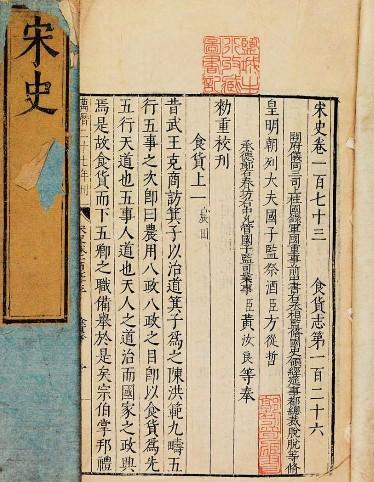 宋史
宋史卷一百七十三 食貨志第一百二十六
開府儀同三司上柱國錄軍國重事前中書右丞相監修國史領經筵事都總裁脫脫等修
皇明朝列大夫國子監祭酒臣方從哲
承德郎右春坊右中允管國子監司業事臣黃汝良等奉
勑重校刊
食貨上一 農田
昔武王克商訪箕子以治道箕子為之陳洪範九疇五
行五事之次即曰農用八政八政之目即以食貨為先
五行天道也五事人道也天人之道治而國家之政興
焉是故食貨而下五卿之職備舉於是矣宗伯掌邦禮